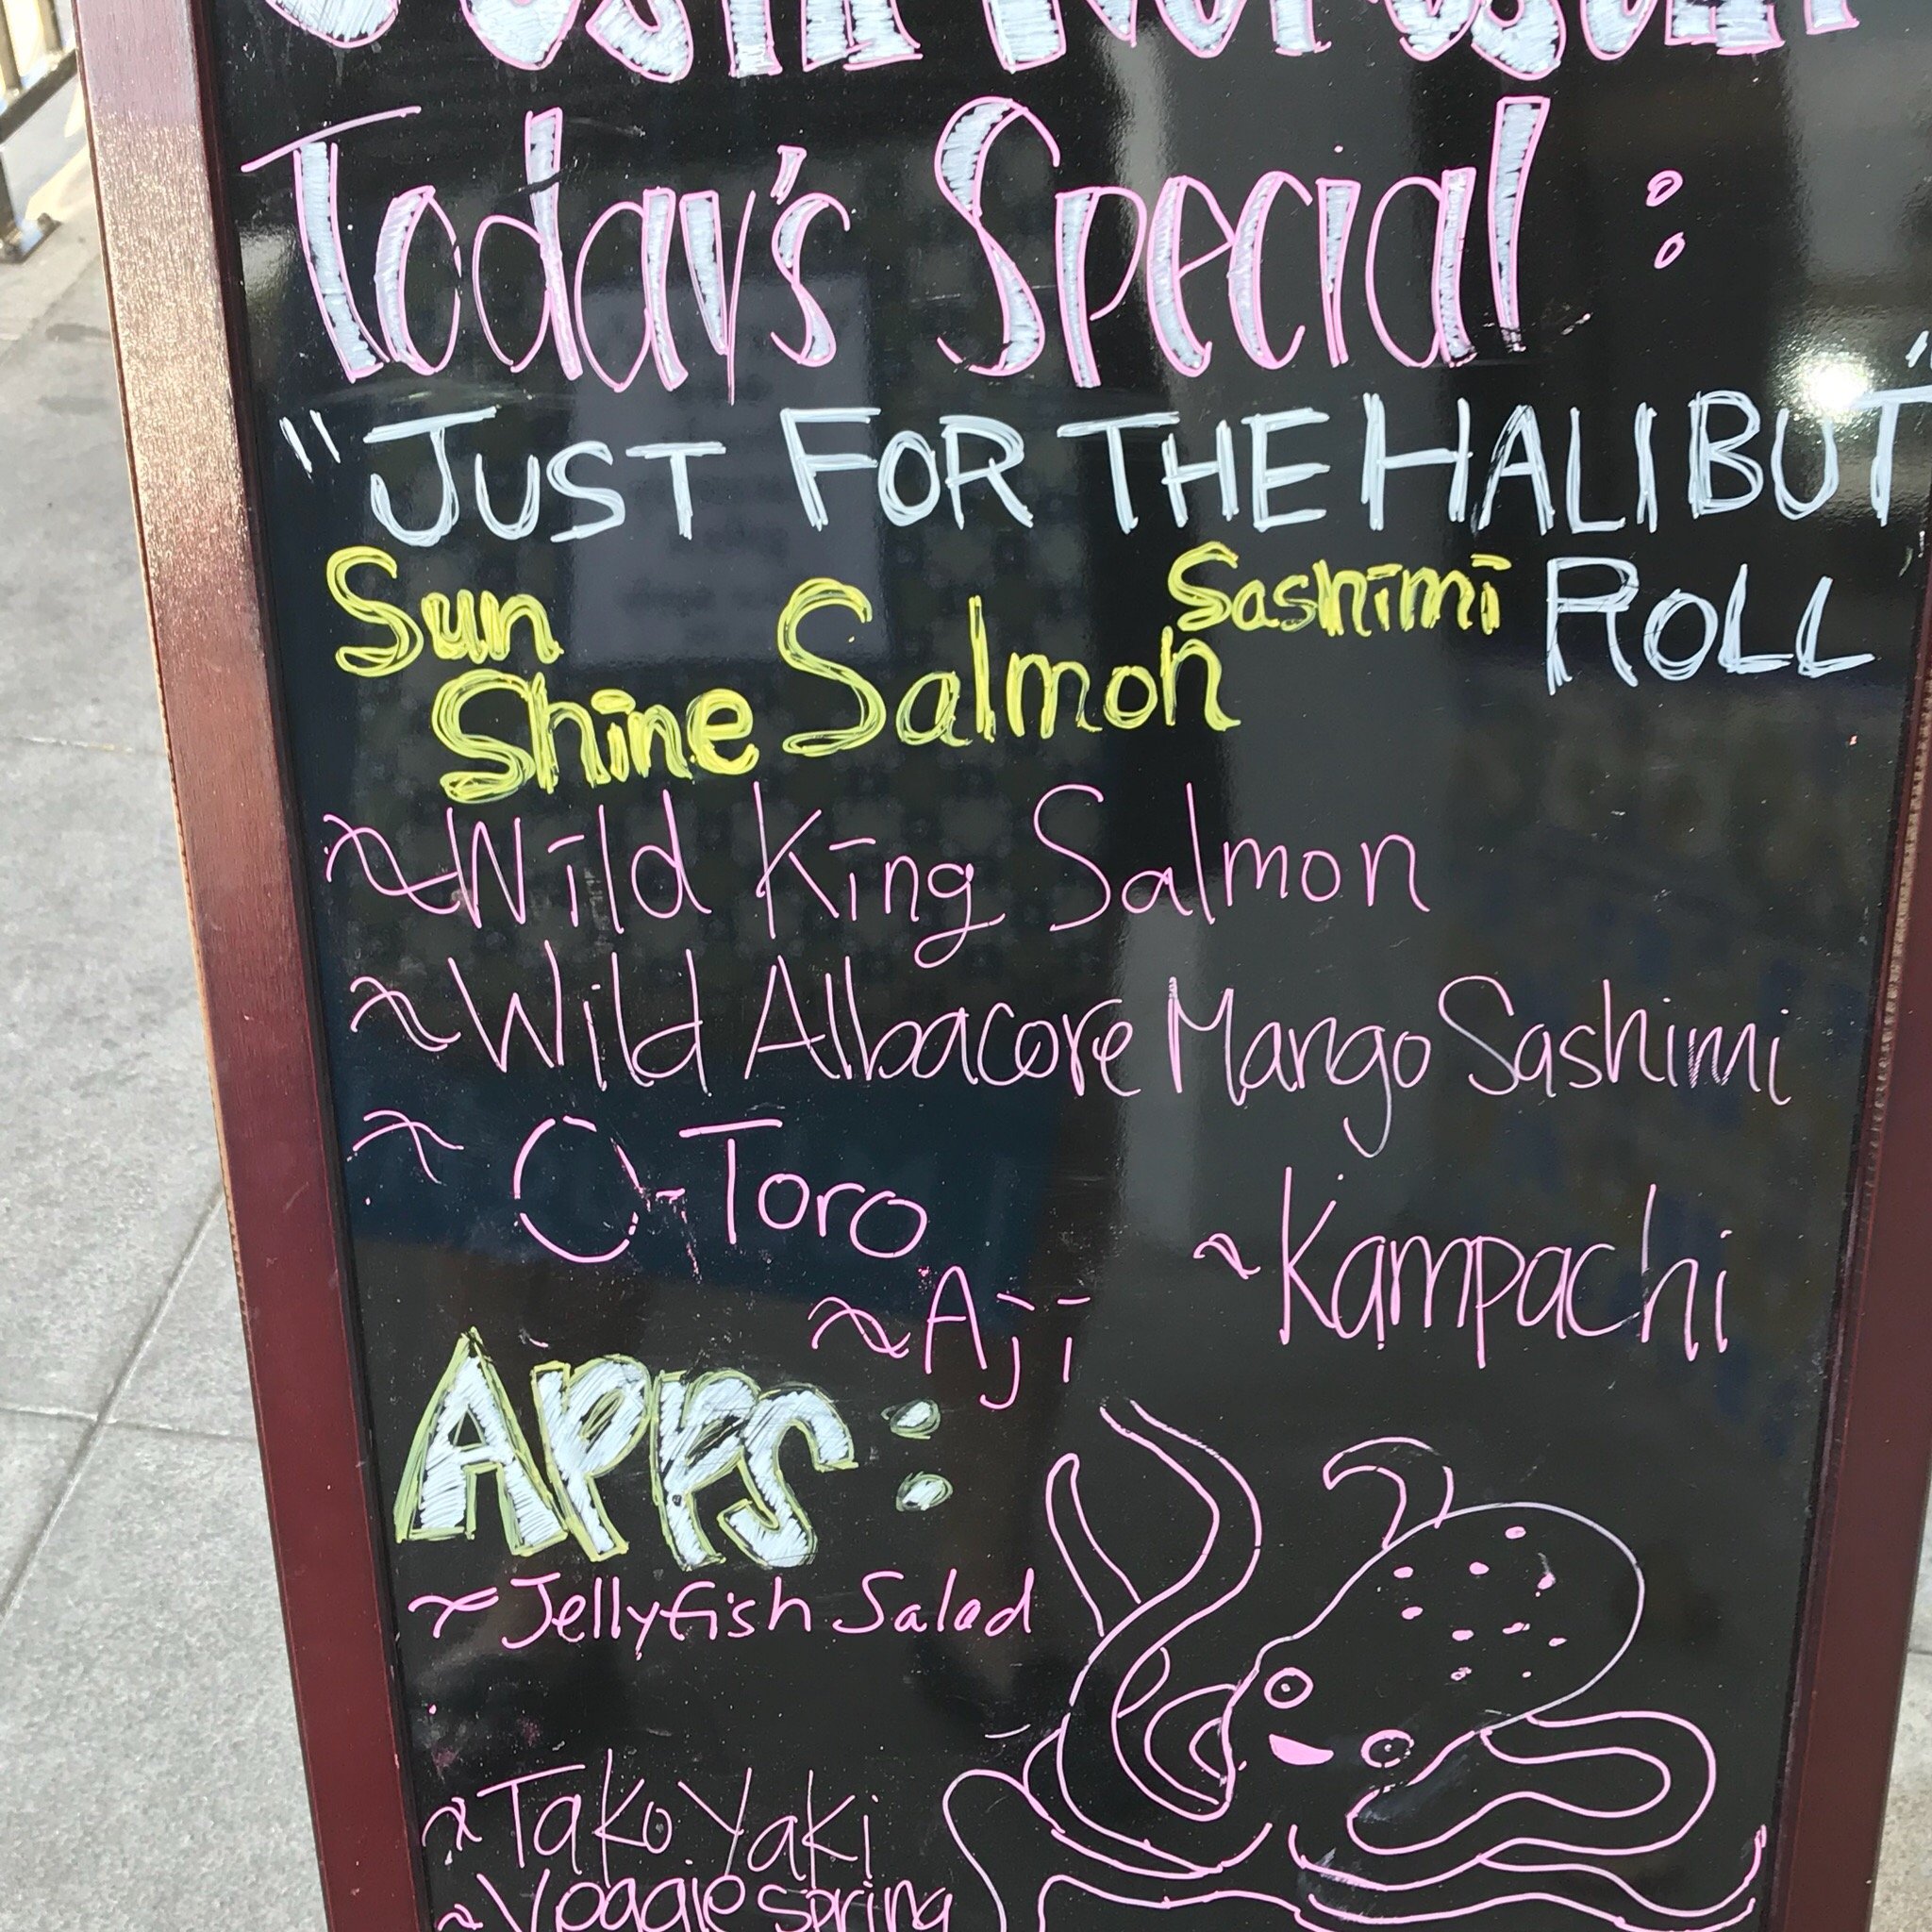 Today's Special :
"JUST FOR THE HALIBUT"
ROLL
Sun Shine Salmon Sashimi
~Wild King Salmon
~Wild Albacore Mango Sashimi
~ O-Toro
~Kampachi
~Aji
APPS :
~Jellyfish Salad
~Tako Yaki
~Veggie spring